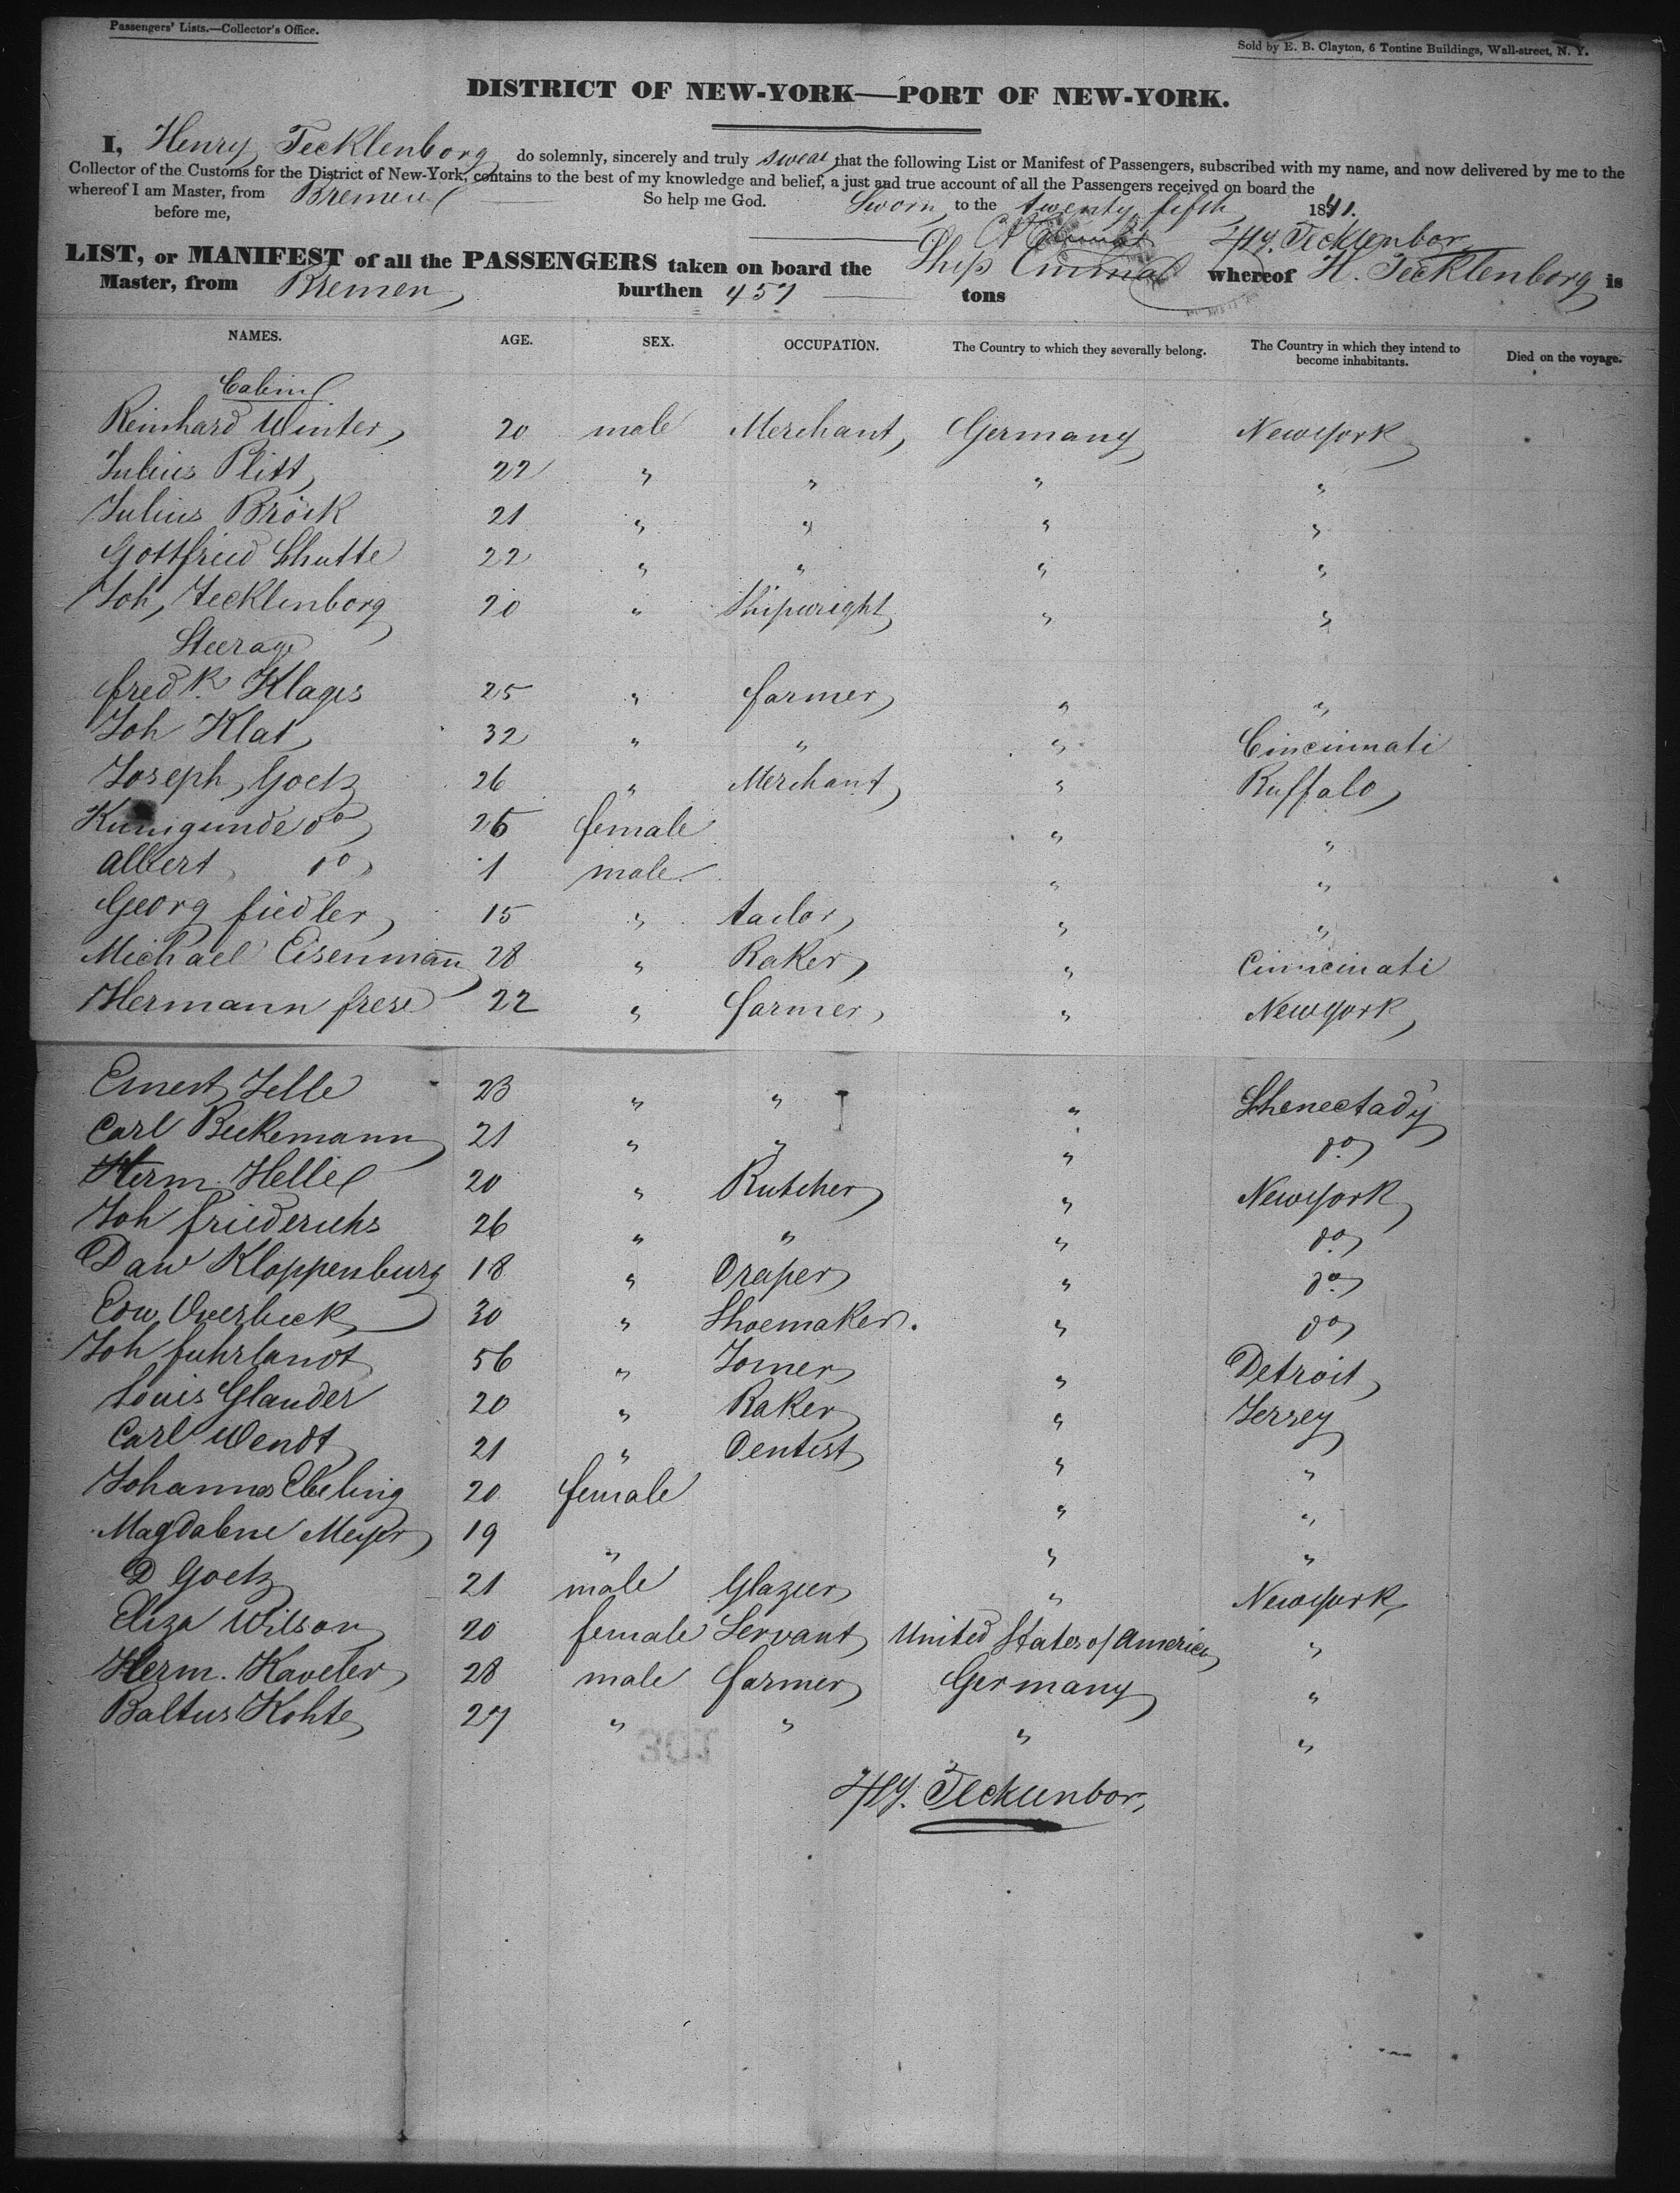 Passengers' Lists.—Collector's Office.
Sold by E. B. Clayton, 6 Tontine Buildings, Wall-street, N. Y.
DISTRICT OF NEW-YORK—PORT OF NEW-YORK.
I, Henry Tecklenborg do solemnly, sincerely and truly swear that the following List or Manifest of Passengers, subscribed with my name, and now delivered by me to the
Collector of the Customs for the District of New-York, contains to the best of my knowledge and belief, a just and true account of all the Passengers received on board the
whereof I am Master, from Bremen So help me God. Sworn to the twenty fifth 1841.
before me, Hy. Tecklenbor
LIST, or MANIFEST of all the PASSENGERS taken on board the Ship Emma whereof H. Tecklenborg is
Master, from Bremen burthen 457 tons
NAMES. AGE. SEX. OCCUPATION. The Country to which they severally belong. The Country in which they intend to become inhabitants. Died on the voyage.
Cabin
Reinhard Winter 20 male Merchant Germany NewYork
Julius Plitt 22 " " " "
Julius Bröck 21 " " " "
Gottfried Schutte 22 " " " "
Joh, Tecklenborg 20 " Shipwright " "
Steerage
fredk. Klages 25 " farmer " "
Joh Klat 32 " " " Cincinnati
Joseph Goetz 26 " Merchant " Buffalo
Kunigunde do 26 female " "
Albert do 1 male " "
Georg fiedler 15 " tailor " "
Michael Eisenmann 28 " Baker " Cinncinati
Hermann frese 22 " farmer " NewYork
Ernest Zelle 23 " " " Shenectady
Carl Beckemann 21 " " " do
Herm. Helle 20 " Butcher " NewYork
Joh friederichs 26 " " " do
Daw Kloppenburg 18 " Draper " do
Edw Overbeck 30 " Shoemaker. " do
Joh fuhrlandt 56 " Joiner " Detroit
Louis Glander 20 " Baker " Jersey
Carl Wendt 21 " Dentist " "
Johanna Ebeling 20 female " "
Magdalene Meyer 19 " " "
D Goetz 21 male Glazier " NewYork
Eliza Wilson 20 female Servant United States of America "
Herm. Kaveler 28 male farmer Germany "
Baltus Kohte 27 " " " "
Hy. Tecklenbor,